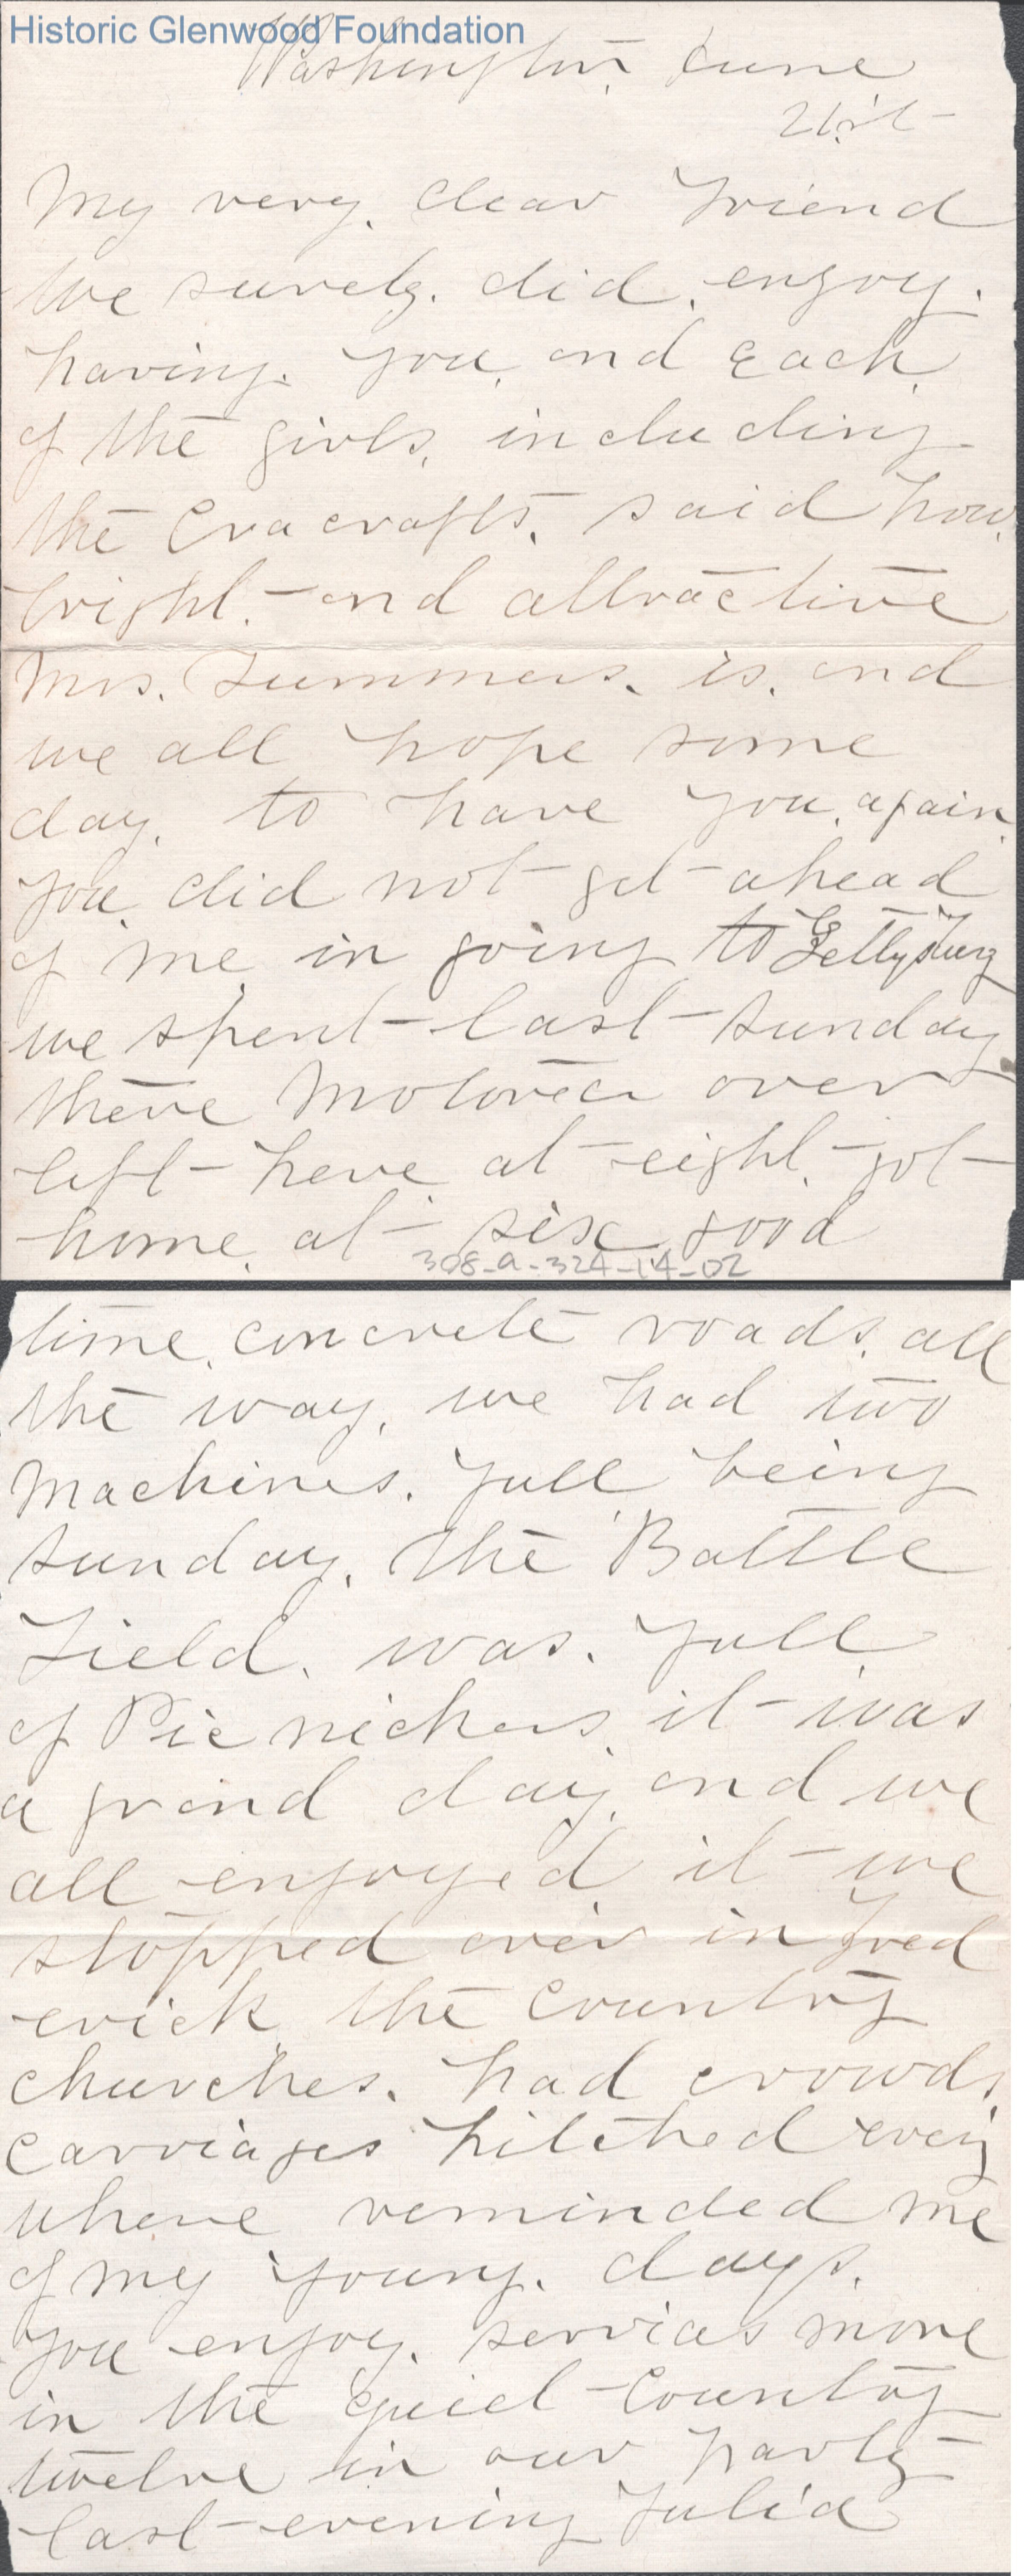 Historic Glenwood Foundation
Washington, June
21st
My very dear Friend
We surely did enjoy
having you and each
of the girls, including
the Cracrafts, said how
bright and attractive
Mrs. Summers. is. and
we all hope some
day, to have you again
you did not get ahead
of me in going to Gettysburg
we spent last Sunday
there Motored over
left here at eight, got
home at six good
308-a-324-14-02
time, concrete roads, all
the way, we had two
Machines. full being
Sunday, the Battle
Field. was. full
of Picnickers it was
a grand day and we
all enjoyed it we
stopped over in Fred
erick the Country
churches. had crowds
Carriages hitched every
where reminded me
of my young. days.
you enjoy. services more
in the quiet Country
twelve in our party
last evening Julia